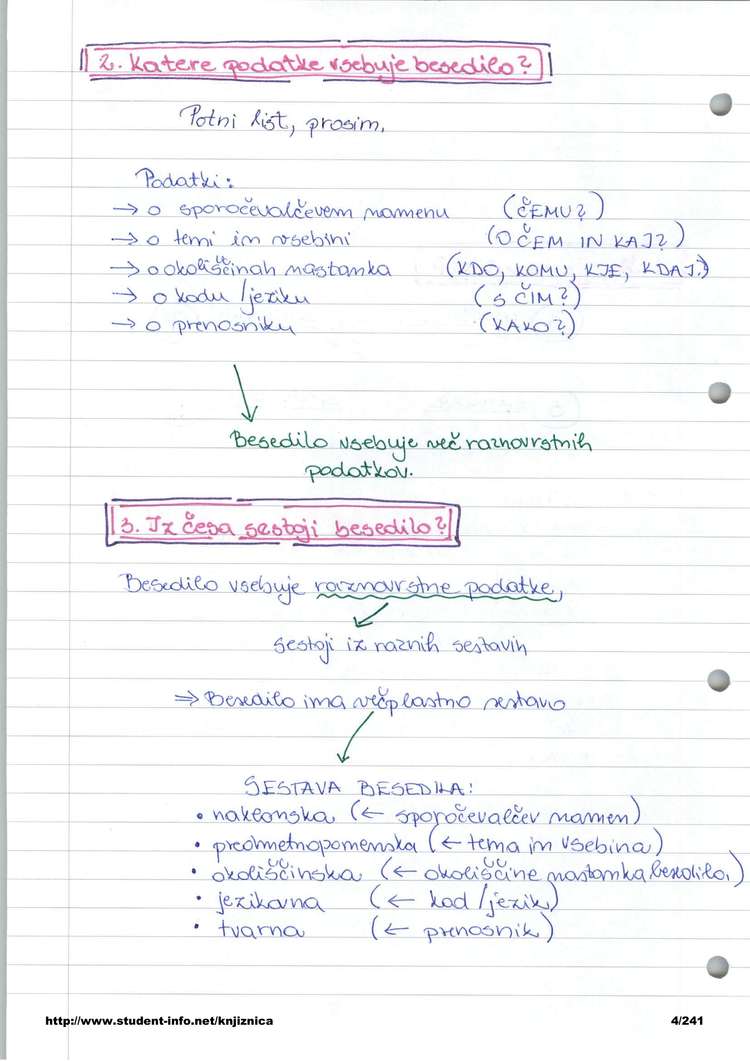 2. Katere podatke vsebuje besedilo?
Potni list, prosim.
Podatki:
→ o sporočevalčevem namenu (ČEMU?)
→ o temi in vsebini (O ČEM IN KAJ?)
→ o okoliščinah nastanka (KDO, KOMU, KJE, KDAJ?)
→ o kodu / jeziku (S ČIM?)
→ o prenosniku (KAKO?)
Besedilo vsebuje več raznovrstnih
podatkov.
3. Iz česa sestoji besedilo?
Besedilo vsebuje raznovrstne podatke,
sestoji iz raznih sestavin
⇒ Besedilo ima večplastno sestavo
SESTAVA BESEDILA:
• naklonska (← sporočevalčev namen)
• predmetnopomenska (← tema in vsebina)
• okoliščinska (← okoliščine nastanka besedila)
• jezikovna (← kod / jezik)
• tvarna (← prenosnik)
http://www.student-info.net/knjiznica 4/241